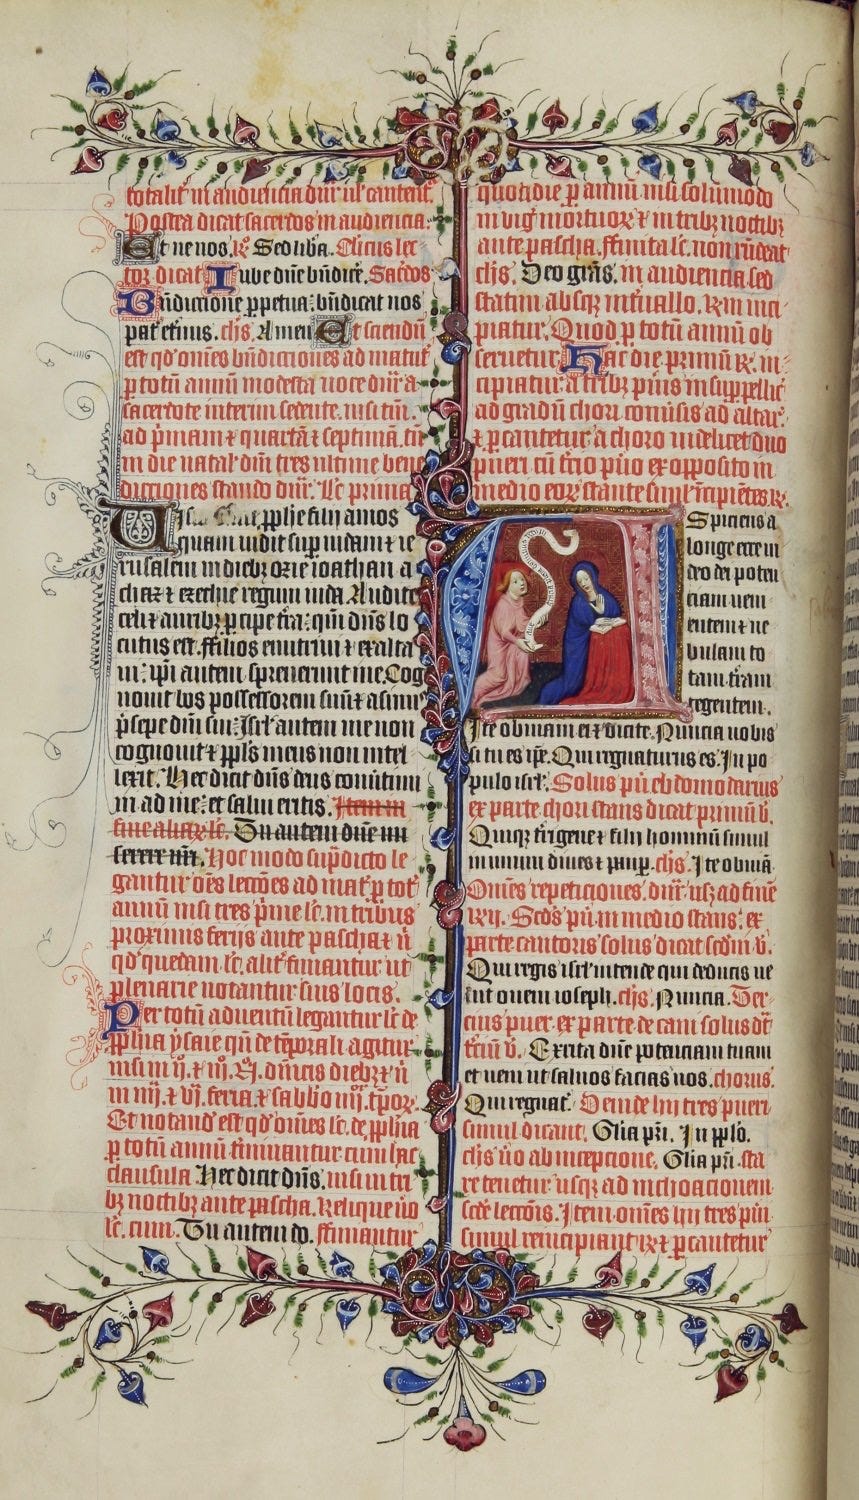 totalit' in audiencia dicit' ul' cantent'.
Postea dicat sacerdos in audiencia.
Et ne nos. R'. Sed liba. Clicus lec-
tor dicat Iube dñe bñdicẽ. Sac'dos
Bñdictione ppetua: bñdicat nos
pat' et'nus. cl'is. Amen. Et sciendũ
est qd' om̃es bñdictiones ad matut'
p totũ annũ modesta uoce dicũt' a
sacerdote interim sedente. nisi tm̃.
ad p'mam & quartã & septimã. tñ
in die natal' dñi tres ultime ben
dictiones stando dicũt'. Lc' prima
pphe filii amos
quam uidit sup iudam & ie
rusalem in dieb3 ozie ioathan a
cha3 & ezechie regum iuda. Audite
celi & aurib3 pcipe t'ra: qm̃ dñs lo
cutus est. Filios enutriui & exalta
ui: ipi autem spreuerunt me. Cog
nouit bos possessorem suũ & asinus
p'sepe dñi sui: Isrl' autem me non
cognouit & ppl's meus non intel
lexit. Hec dicit dñs deus conuertimi
ni ad me: et salui eritis. Item in
fine alicui9 lc'. Tu autem dñe mi
serere nr̃i. Hoc modo sup'dicto le
gantur om̃s lectões ad mat' p totũ
annũ nisi tres p'me lc' in tribus
proximis ferijs ante pascha & ñ
qd' quedam lc' alit' finiantur ut
plenarie notantur suis locis.
Per totũ aduentũ legantur lc' de
pphia ysaie qñ de t'porali agitur
nisi in ij. & iij. dñicis dieb3 & ñ
in iiij. & vj. feria & sabb'o iiij. tpor.
Et notand' est qd' om̃es lc' de pphia
p totũ annũ t'minantur cum hac
clausula. Hec dicit dñs. nisi in tri
b3 noctib3 ante pascha. Relique u'o
lc' cum. Tu autem do. Finiantur
quotidie p annũ nisi solũmodo
in vig' mortuor & in trib3 noctib3
ante pascha. Finita lc'. non r'ndeat
cl'is. Deo gr̃as. in audiencia sed
statim absq3 int'uallo. R'm inci
piatur. Quod p totũ annũ ob
seruetur. Hac die primũ R'. in-
cipiatur a trib3 p'uis in suppellic'
ad gradũ chori conu'sis ad altar'.
& pcantetur a choro uidelicet duo
pueri cũ t'cio p'uo ex opposito in
medio eor stante simul icipietes R'.
Aspiciens a
longe ecce ui
deo dei poten
ciam ueni
entem & ne
bulam to
tam t'ram
tegentem.
Ite obuiam ei & dicite. Nuncia nobis
si tu es ipe. Qui regnaturus es. In po
pulo isrl'. Solus pu' ebdomodarius
ex parte chori stans dicat primũ v'.
Quiq3 t'rigene & filii hominũ simul
in unum diues & paup. cl'is. Ite obuiã.
Om̃es repeticiones dicũt' usq3 ad finẽ
R'ii. Sed's pu' in medio stans. ex
parte cantoris solus dicat scdm v'.
Qui regis isrl' intende qui deducis ue
lut ouem ioseph. cl'is. Nuncia. Ter-
cius puer ex parte decani solus dicat
t'ciũ v'. Excita dñe potenciam tuam
et ueni ut saluos facias nos. chorus.
Qui regnat'. Deinde hij tres pueri
simul dicant. Gl'ia pr̃i. In pplo.
cl'is u'o ab incepcione. Gl'ia pr̃i. sta
re tenetur usq3 ad inchoacionem
scd'e lecc'ois. Item om̃es hij tres pu'i
simul reincipiant R' & pcantetur